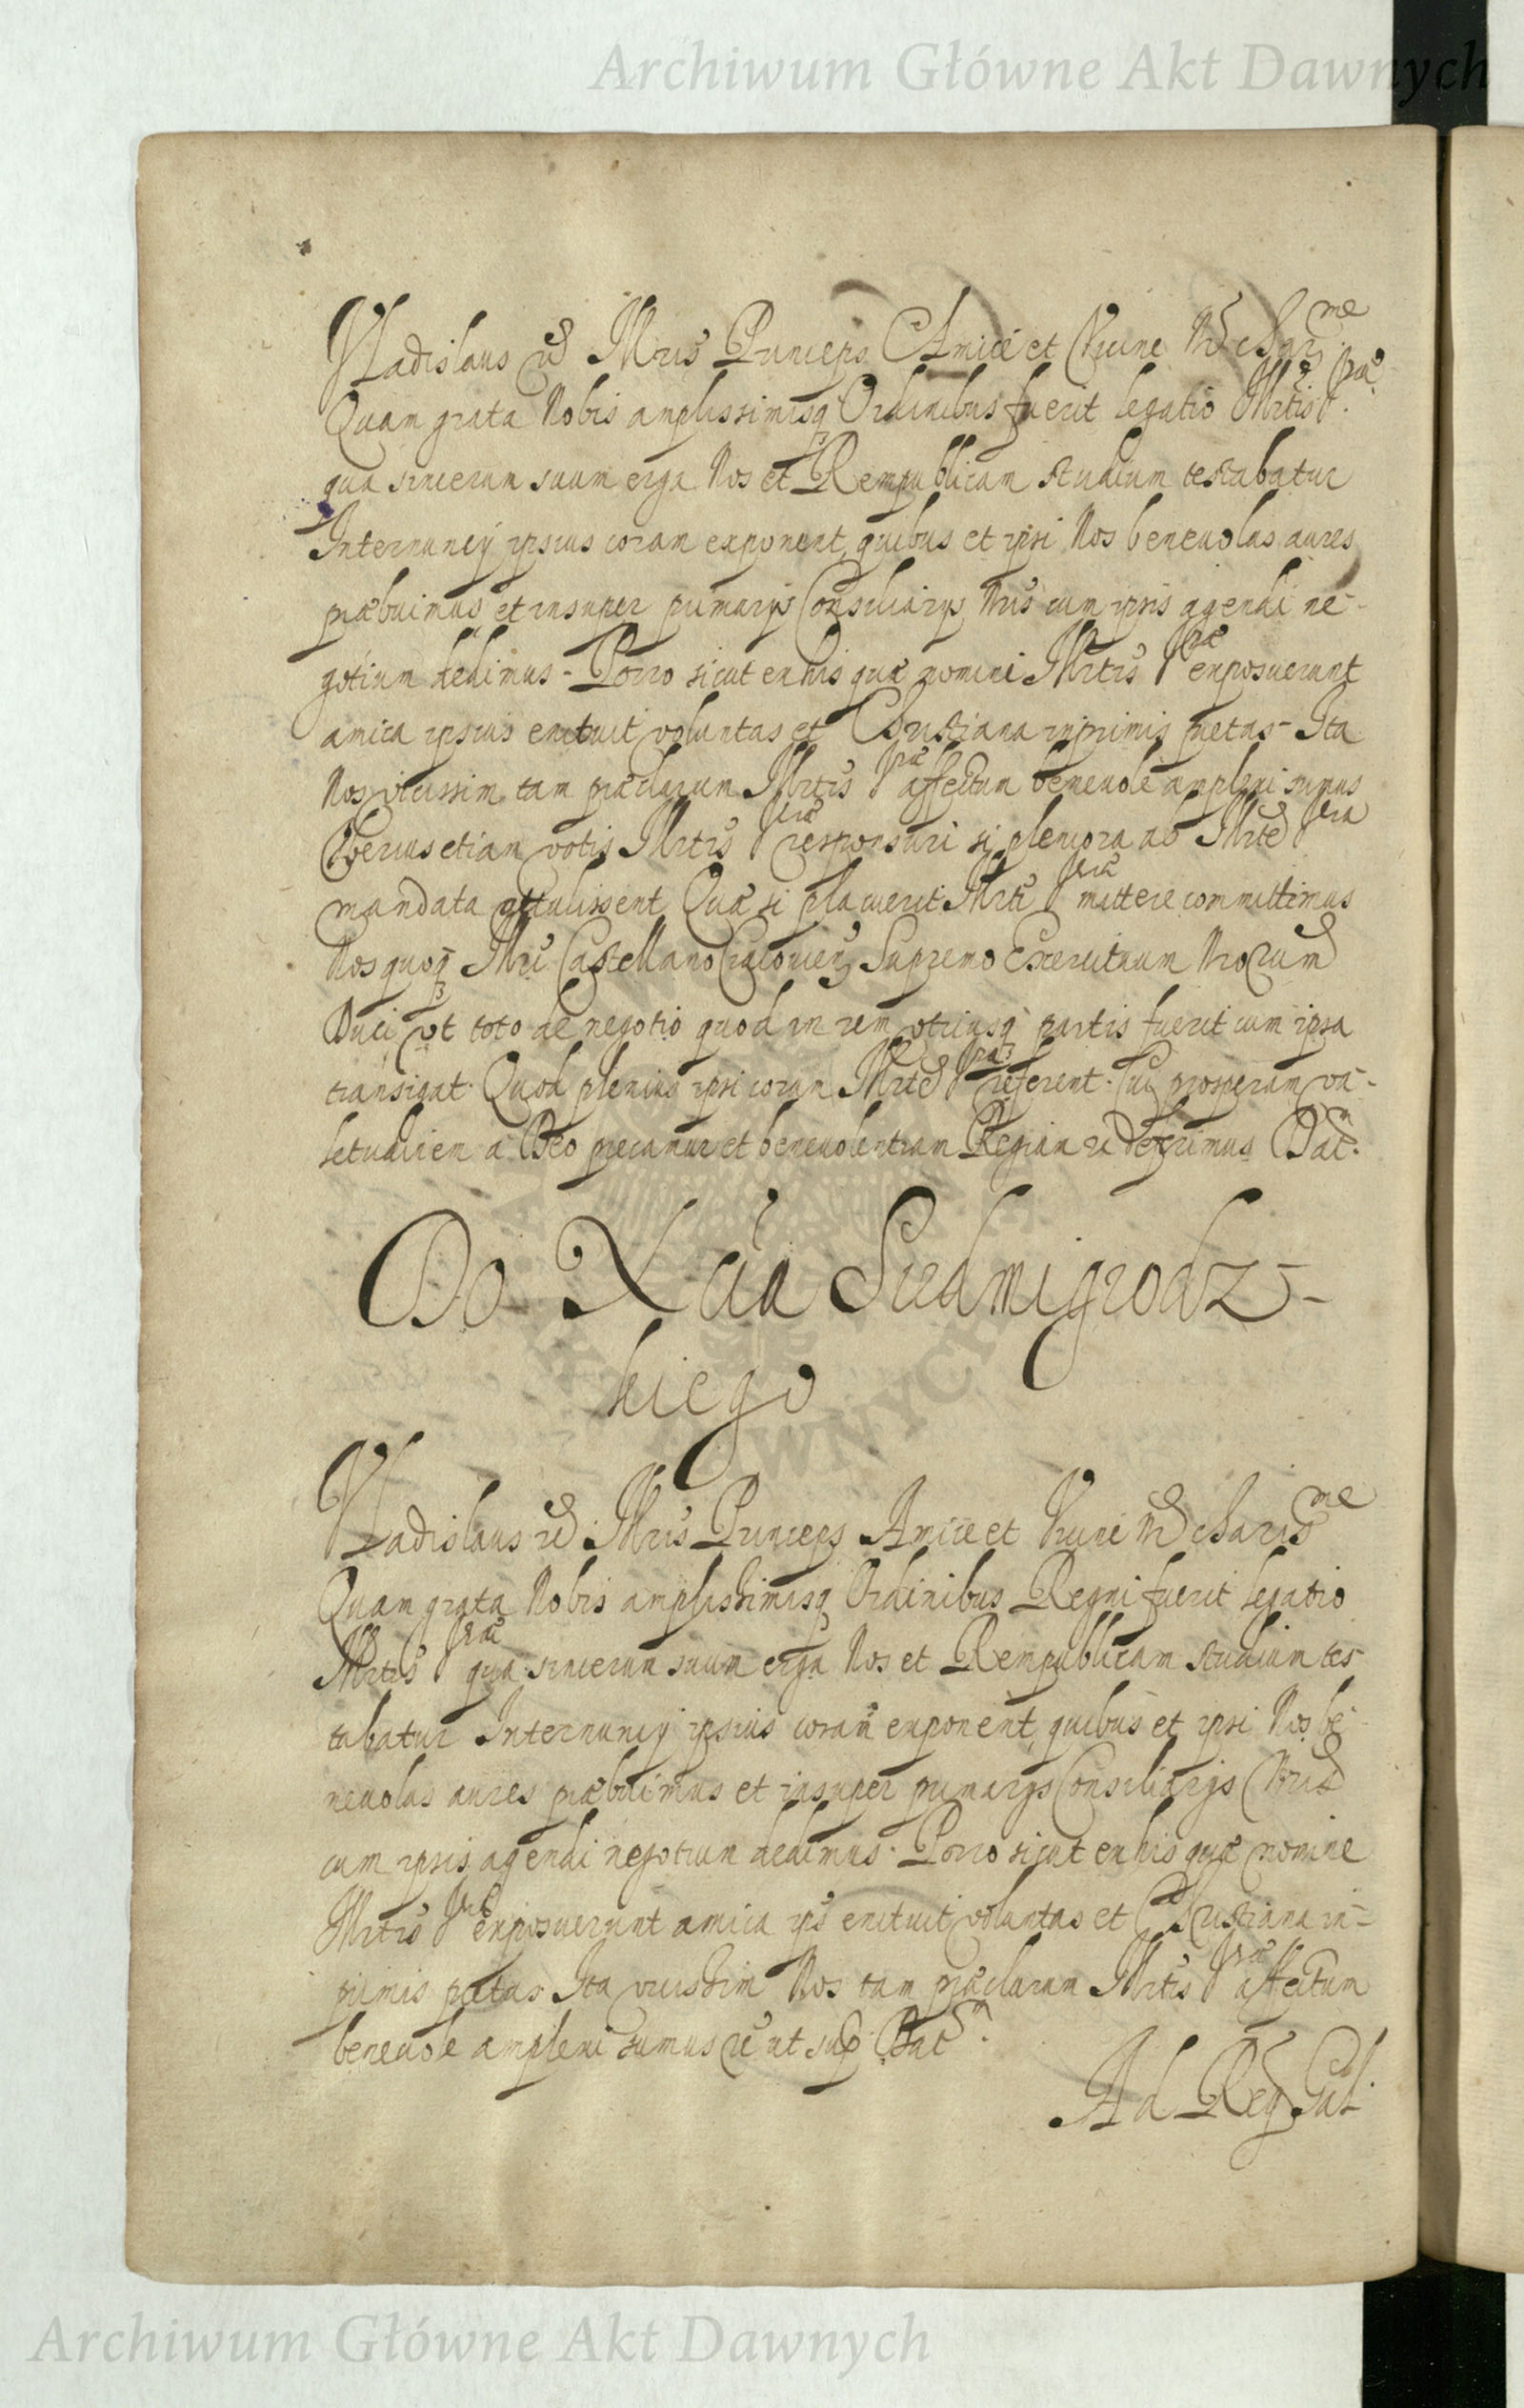 Archiwum Główne Akt Dawnych
Vladislaus Illris Princeps Amice et Vicine
Quam grata Nobis amplissimisq Ordinibus fuerit legatio Illrtis Vræ
qua sincerum suum erga Nos et Rempublicam studium testabatur
Internuncij ipsius coram exponent, quibus et ipsi Nos beneuolas aures
præbuimus et insuper primarijs Consiliarijs Nris cum ipsis agendi ne-
gotium dedimus. Porro sicut ex his quæ nomine Illrtis Vræ exposuerunt
amica ipsius enituit voluntas et Christiana inprimis pietas. Ita
Nos vicissim tam præclarum Illrtis Vræ affectum beneuole amplexi sumus
Vberius etiam votis Illrtis Vræ responsuri si pleniora ab Illrte Vra
mandata attulissent Quæ si placuerit Illrti Vræ mittere committimus
Nos quoq Illri Castellano Cracouien Supremo Exercituum Nrorum
Duci vt toto de negotio quod in rem vtriusq partis fuerit cum ipsa
transigat. Quod plenius ipsi coram Illrte Vra referent. Cui prosperam va-
letudinem a Deo precamur et beneuolentiam Regiam deferimus Datm
Do Xcia Siedmigrodz-
kiego
Vladislaus Illris Princeps Amice et Vicine Nr charisme
Quam grata Nobis amplissimisq Ordinibus Regni fuerit legatio
Illrtis Vræ qua sincerum suum erga Nos et Rempublicam studium tes-
tabatur Internuncij ipsius coram exponent, quibus et ipsi Nos be-
neuolas aures præbuimus et insuper primarijs Consiliarijs Nris
cum ipsis agendi negotium dedimus. Porro sicut ex his quæ nomine
Illrtis Vræ exposuerunt amica ips enituit voluntas et Christiana in-
primis pietas Ita vicissim Nos tam præclarum Illrtis Vræ affectum
beneuole amplexi sumus ut sup Datm.
Ad Reg Gal.
Archiwum Główne Akt Dawnych